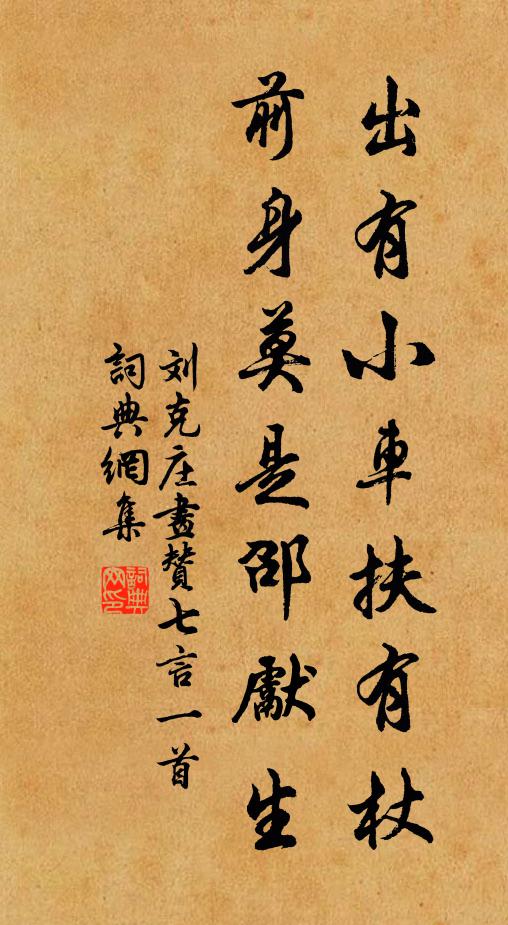 出有小車扶有杖
前身莫是邵獻生
刘克庄畫贊七言一首
詞典網集
詞典网印